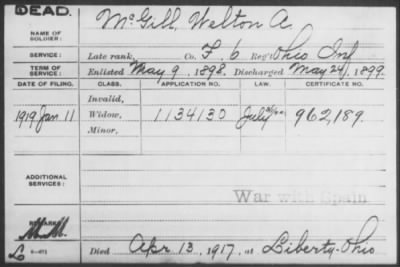 DEAD.
NAME OF SOLDIER: McGill, Walton A.
SERVICE: Late rank, Co. F. 6 Reg't Ohio Inf
TERM OF SERVICE: Enlisted May 9, 1898, Discharged May 24, 1899.
DATE OF FILING. CLASS. APPLICATION NO. LAW. CERTIFICATE NO.
Invalid,
1919 Jan 11 Widow, 1134130 July 962,189.
Minor,
ADDITIONAL SERVICES:
War with Spain
REMARKS:
M.M.
Died Apr 13, 1917, at Liberty, Ohio